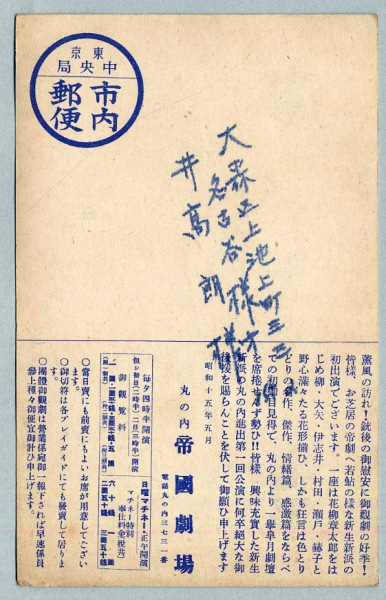 東京
中央局
市内
郵便
大森区上池上町三三
名古谷様方
井高朗様
薫風の訪れ！銃後の御慰安に御観劇の好季！
皆様、お芝居の帝劇へ若鮎の様な新生新派の
初出演でございます。一座は花柳章太郎をは
じめ柳・大矢・伊志井・村田・瀬戸・藤子と
野心満々たる花形揃ひ、しかも狂言は色とり
どりの名作、傑作、情緒篇、感激篇をならべ
ての初御目見得で、丸の内より一挙皐月劇壇
を席捲せんず勢ひ‼皆様、興味充実した新生
新派の丸の内進出第一回公演に何卒絶大な御
後援を賜らんことを伏して御願ひ申上ます
昭和十五年五月
丸の内 帝國劇場
電話丸の内三七三一番
毎夕四時半開演
但シ初日(二時半)二日(三時半)開演
御観覧料
日曜マチネー(正午開演)
マチネー特別
奉仕料金(税共)
六十銭
○当日売にも前売にもよいお席が用意してござい
ます。
○御切符は各プレイガイドにても発売して居りま
す。
○団体御観劇は営業係宛御一報下されば早速係員
参上種々御便宜御計ひ申上ます。